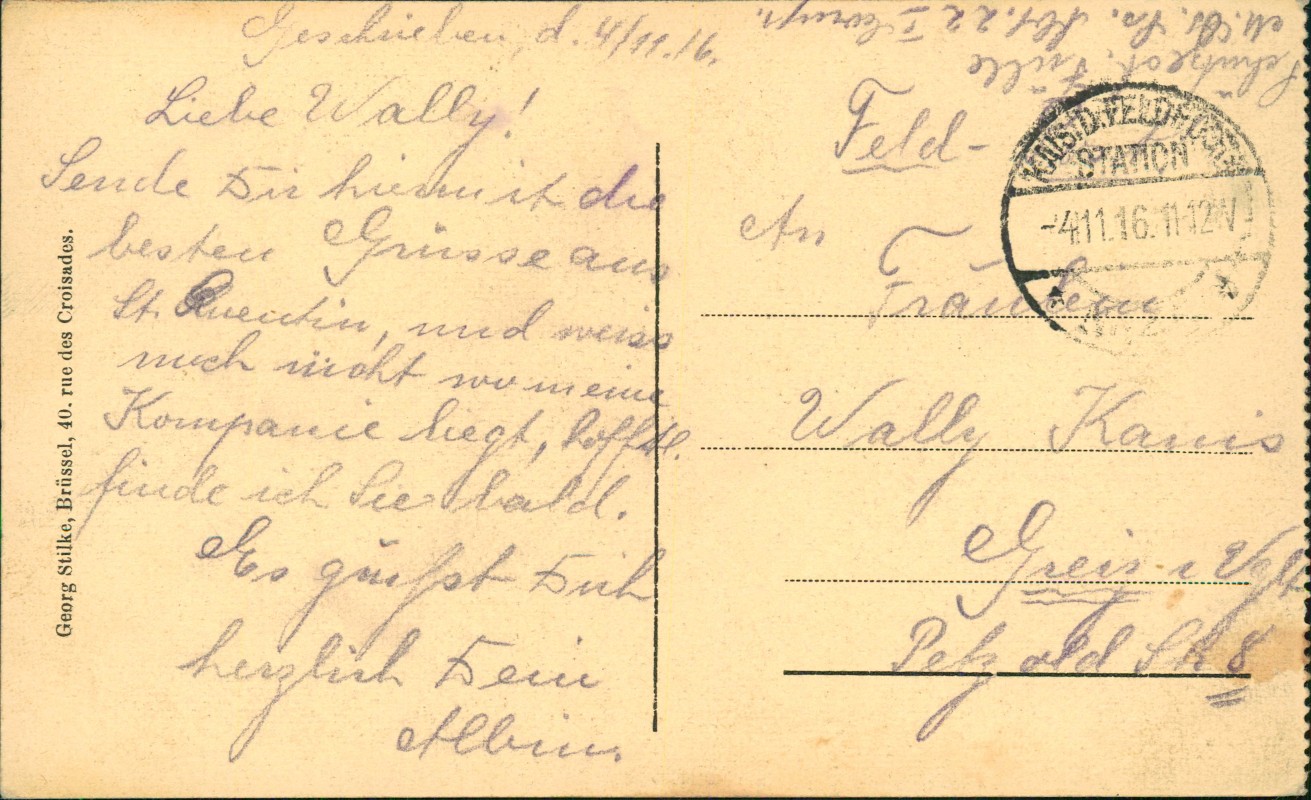 Geschrieben, d. 4/11.16.
Liebe Wally!
Sende Dir hiermit die
besten Grüsse aus
St. Quentin, und weiss
noch nicht wo meine
Kompanie liegt, hofftl.
finde ich Sie bald.
Es grüßt Dich
herzlich Dein
Albin.
Georg Stilke, Brüssel, 40. rue des Croisades.
Feld-
An
Fräulein
Wally Kanis
Greiz i Vgtl
Petzold Str 8
K.D. FELDPOST
STATION
-4.11.16.11-12V